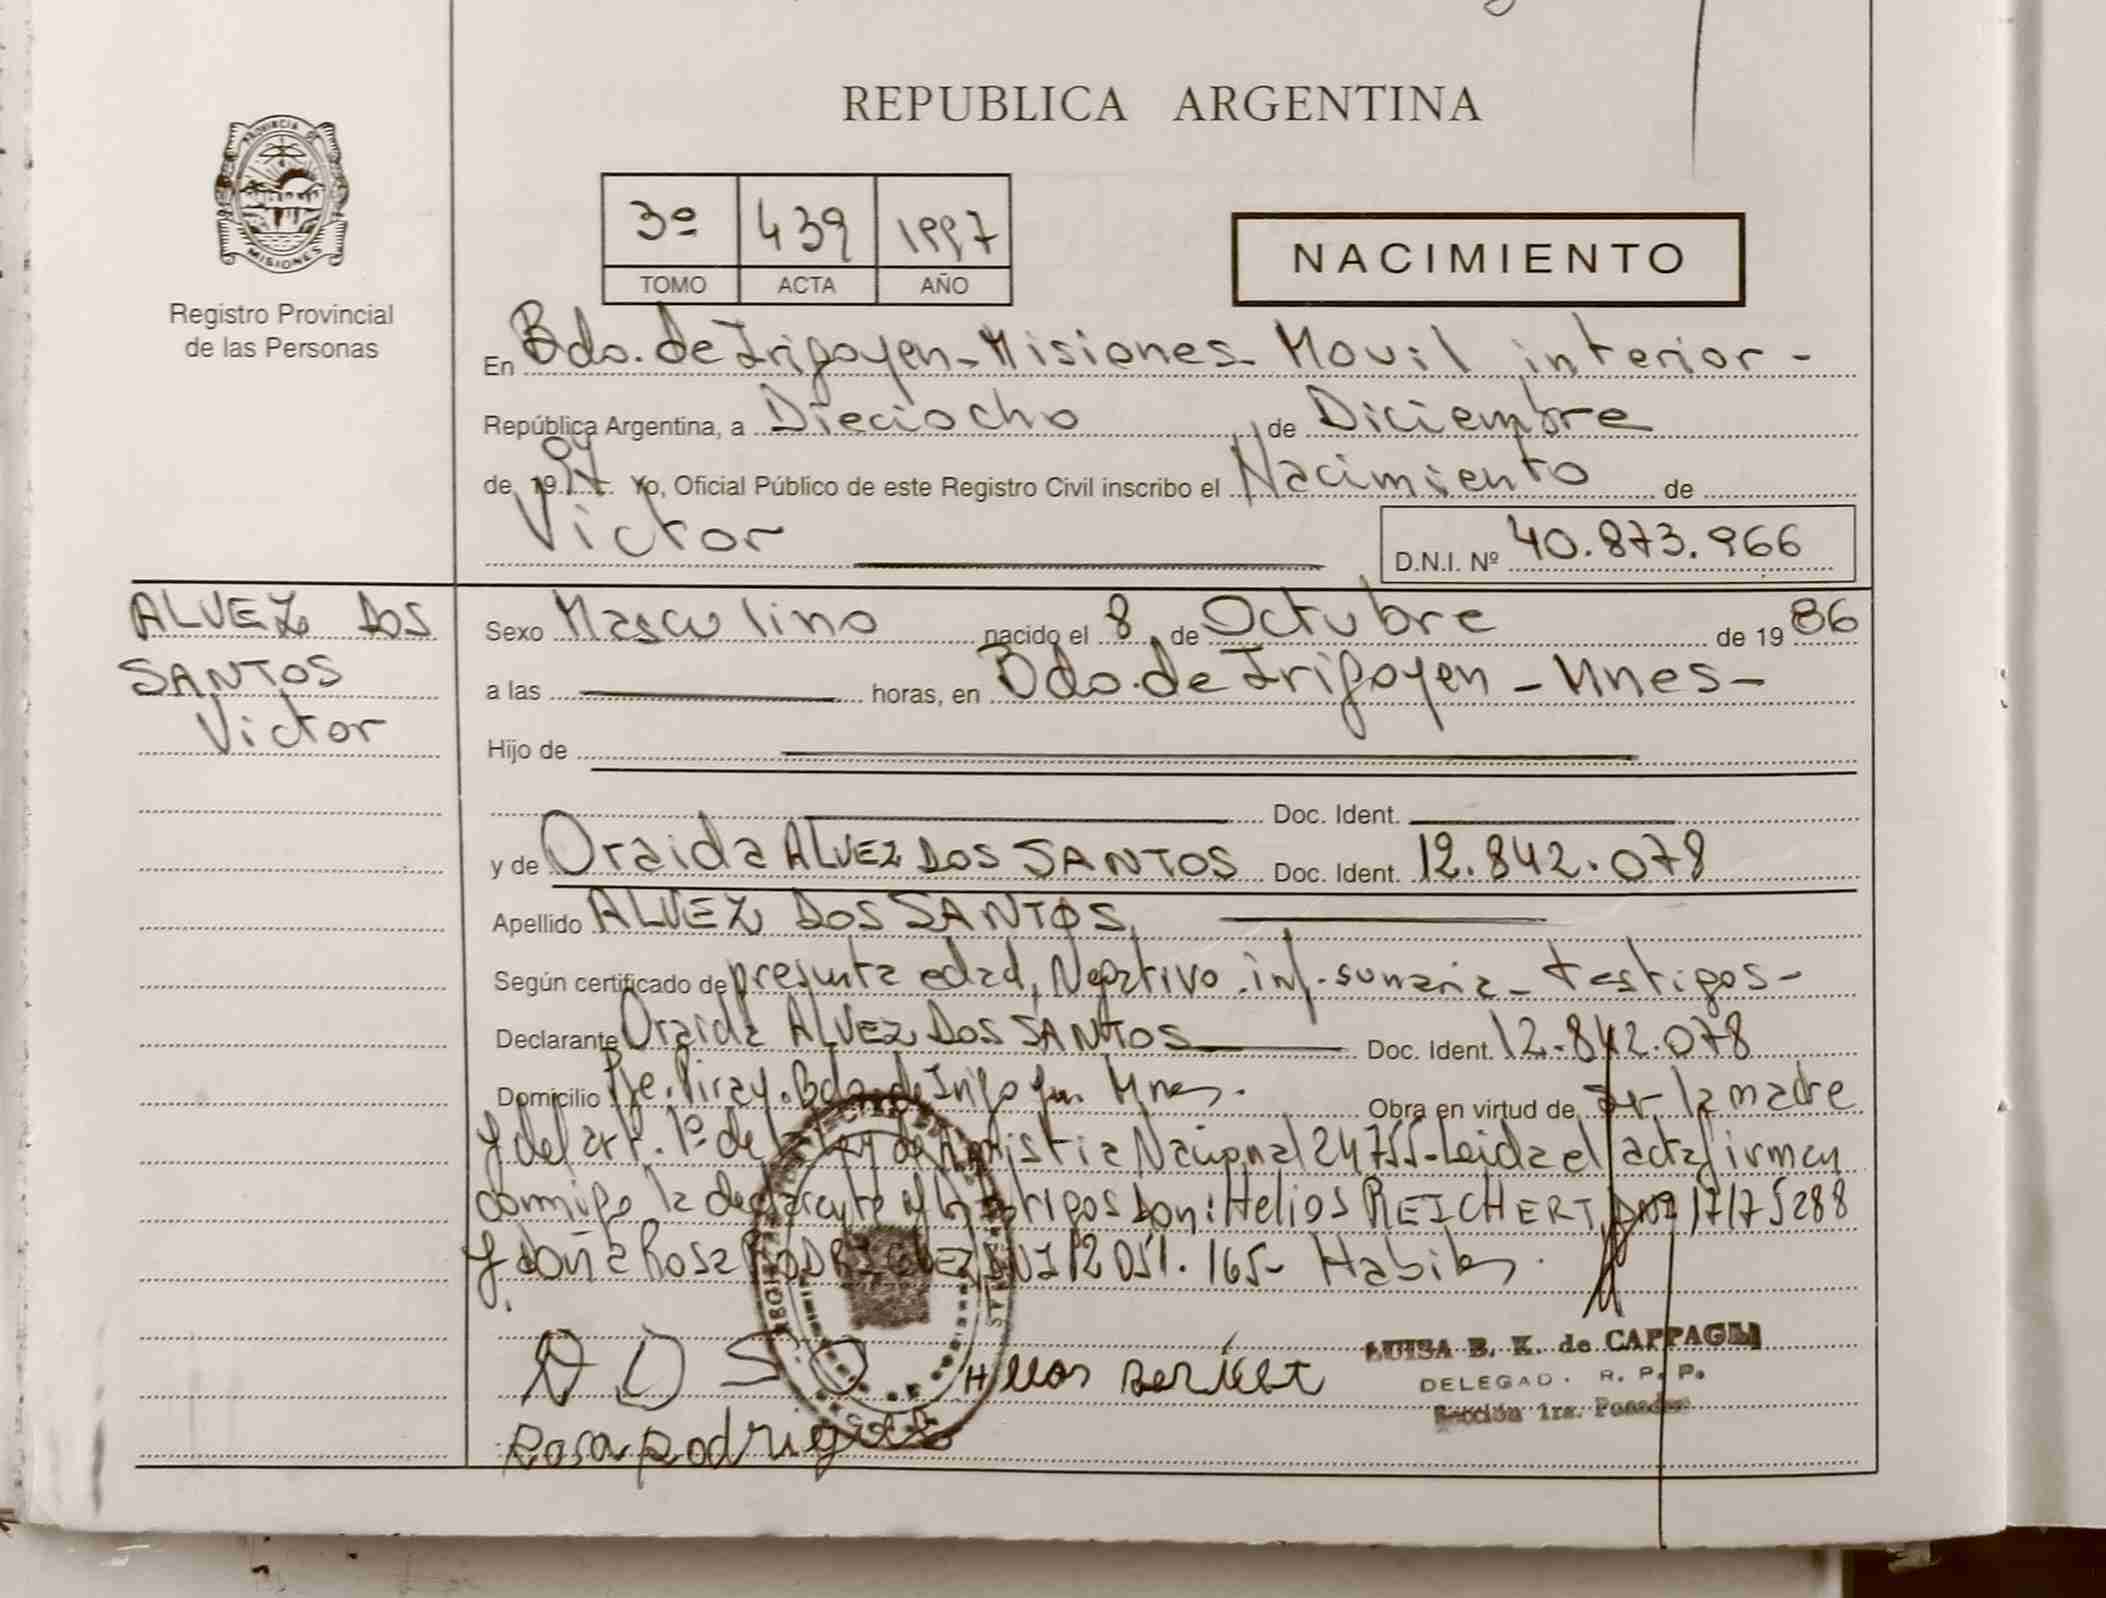 REPUBLICA ARGENTINA
PROVINCIA D
MISIONES
Registro Provincial
de las Personas
3º 439 1997
TOMO ACTA AÑO
NACIMIENTO
En Bdo. de Irigoyen - Misiones - Movil interior -
República Argentina, a Dieciocho de Diciembre
de 1997. Yo, Oficial Público de este Registro Civil inscribo el Nacimiento de
Victor
D.N.I. Nº 40.873.966
ALVEZ DOS
SANTOS
Victor
Sexo Masculino nacido el 8 de Octubre de 1986
a las horas, en Bdo. de Irigoyen - Mnes -
Hijo de
Doc. Ident.
y de Oraida ALVEZ DOS SANTOS Doc. Ident. 12.842.078
Apellido ALVEZ DOS SANTOS
Según certificado de presunta edad, Negativo. inf. sumaria - testigos -
Declarante Oraida ALVEZ DOS SANTOS Doc. Ident. 12.842.078
Domicilio Pje. Piray. Bdo. de Irigoyen Mnes. Obra en virtud de ser la madre
y del art. 1º de la Ley de Amnistia Nacional 24755 - Leida el acta firman
conmigo la declarante y los testigos Don: Helios REICHERT DNI 17175288
y doña Rosa RODRIGUEZ DNI 12051.165 - Habiles.
A D S O Helios
LUISA B. K. de CAPPAGLI
DELEGAD. R. P. P.
Sección 1ra. Posadas
Rosa Rodrigez